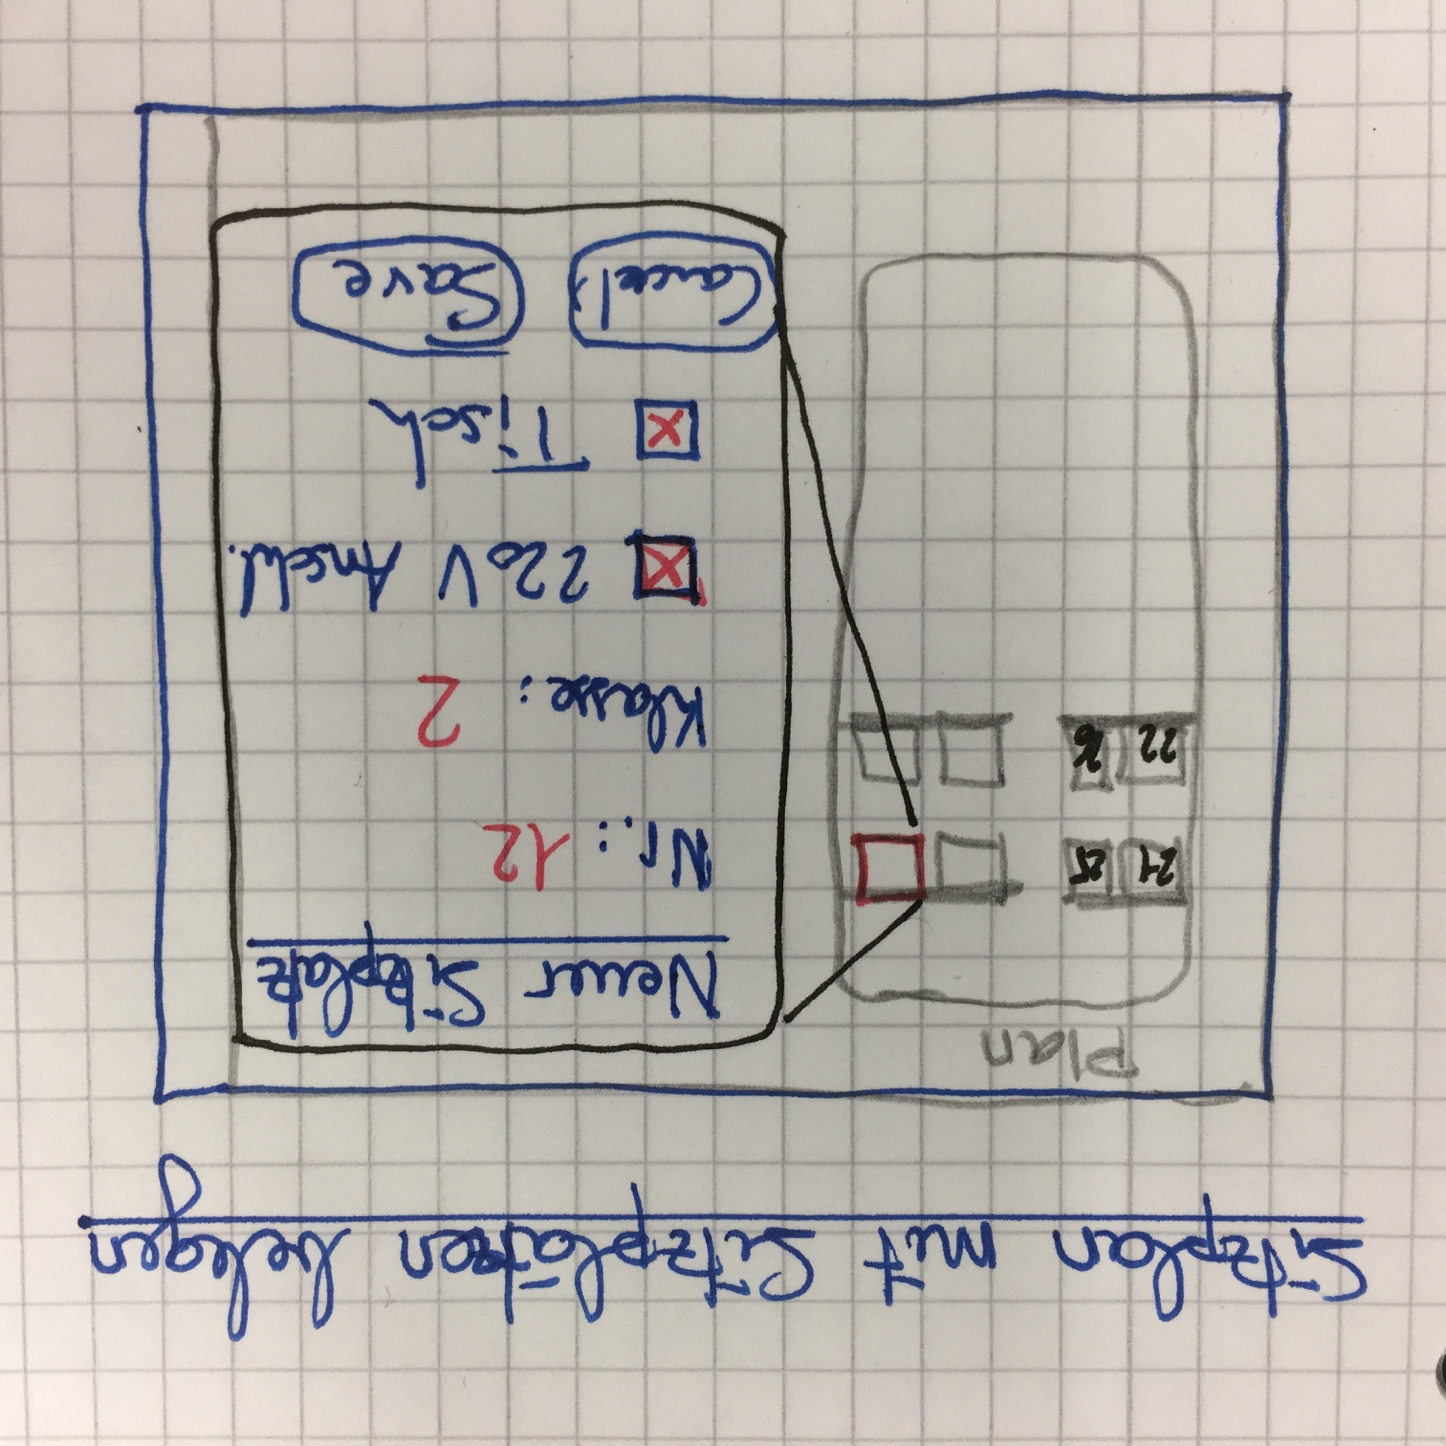 Sitzplan mit Sitzplätzen belegen
Plan
21 25
22 26
Neuer Sitzplatz
Nr.: 12
Klasse: 2
220V Anschl.
Tisch
Cancel Save